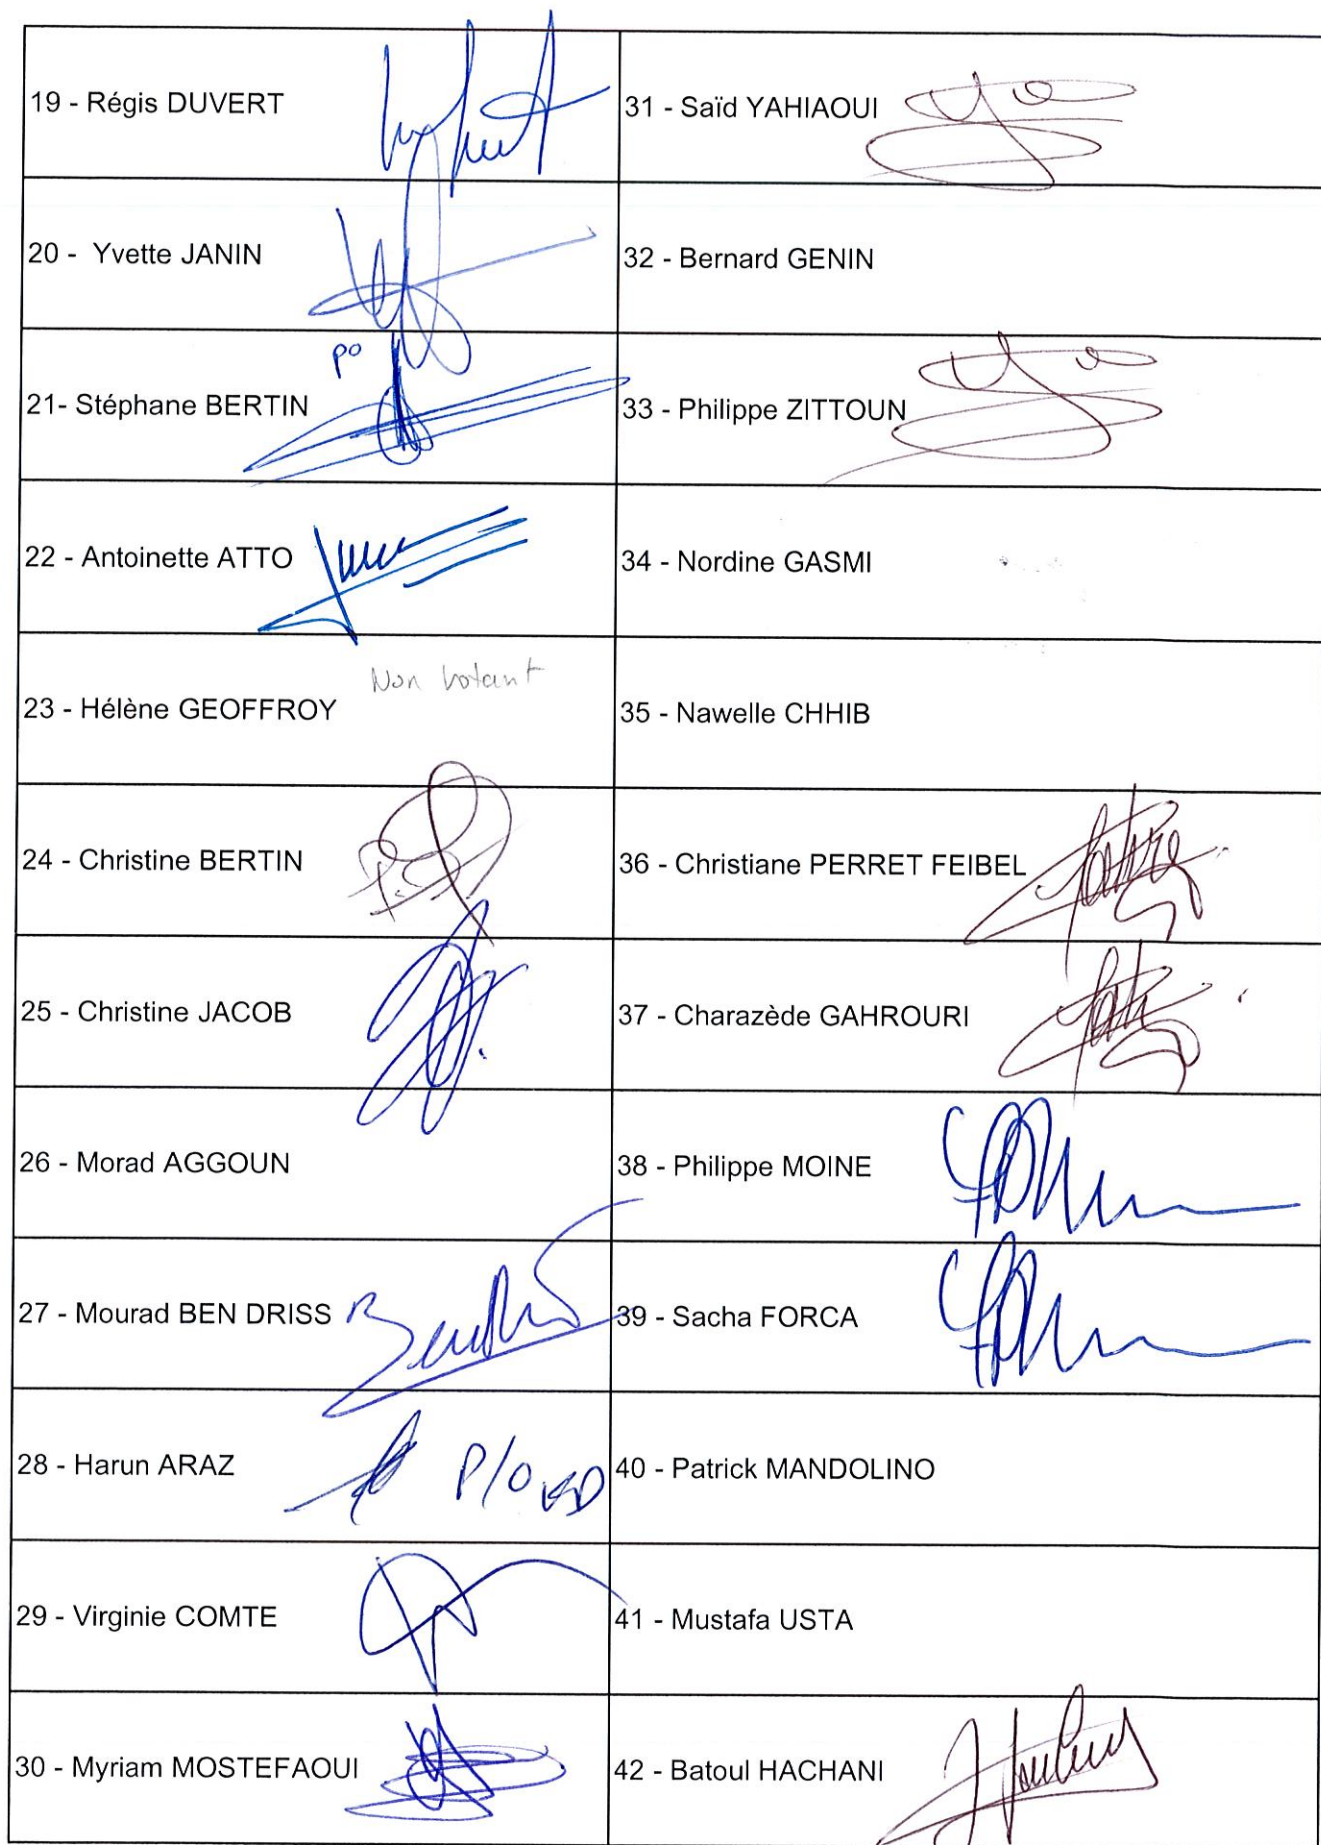 19 - Régis DUVERT
31 - Saïd YAHIAOUI
20 - Yvette JANIN
32 - Bernard GENIN
po
21- Stéphane BERTIN
33 - Philippe ZITTOUN
22 - Antoinette ATTO
34 - Nordine GASMI
Non votant
23 - Hélène GEOFFROY
35 - Nawelle CHHIB
24 - Christine BERTIN
36 - Christiane PERRET FEIBEL
25 - Christine JACOB
37 - Charazède GAHROURI
26 - Morad AGGOUN
38 - Philippe MOINE
27 - Mourad BEN DRISS
39 - Sacha FORCA
28 - Harun ARAZ
P/O
40 - Patrick MANDOLINO
29 - Virginie COMTE
41 - Mustafa USTA
30 - Myriam MOSTEFAOUI
42 - Batoul HACHANI